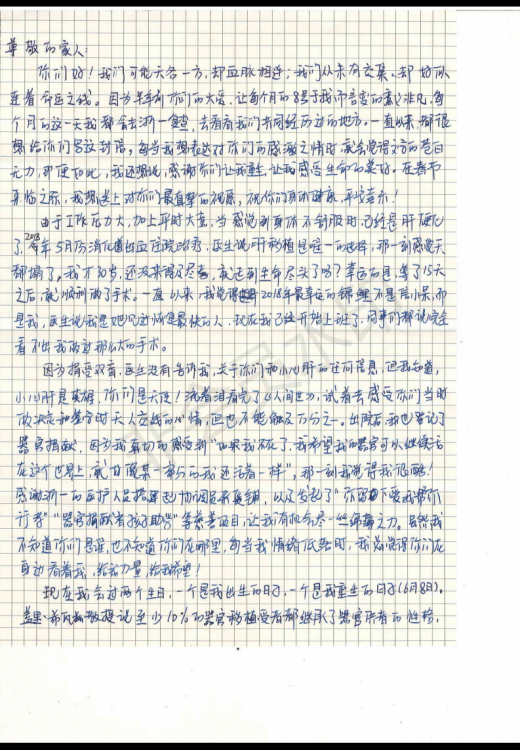 尊敬的家人:
你们好!我们可能天各一方,却血脉相连;我们从未有交集,却好似
连着命运之线。因为半年前你们的大爱,让每个月的8号于我而言意义非凡,每
个月的这一天我都会去浙一复查,去看看我们共同经历过的地方。一直以来,都很
想给你们写这封信,每当我想表达对你们的感激之情时就会觉得文字的苍白
无力,即便如此,我还想说,感谢你们让我重生,让我感受生命的美好。在春节
来临之际,我想送上对你们最真挚的祝愿,祝你们身体健康,平安喜乐!
由于工作压力大,加上平时大意,当感觉到身体不舒服时,已经是肝硬化
了,2018年5月份消化道出血住院治疗,医生说肝移植是唯一的选择,那一刻感觉天
都塌了。我才30岁,还没来得及尽孝,就走到生命尽头了吗?幸运的是,等了15天
之后,就顺利做了手术。一直以来,我觉得2018年最幸运的锦鲤不是信小呆,而
是我,医生说我是她见过恢复最快的人,现在我已经开始上班了,同事们都说完全
看不出我做过那么大的手术。
因为捐受双盲,医生没有告诉我,关于你们和小心肝的任何信息,但我知道,
小心肝是英雄,你们是天使!流着泪看完了《人间世》,试着去感受你们当时
做决定和签字时天人交战的心情,但也不能触及万分之一。出院后,我也登记了
器官捐献,因为我真切的感受到“如果我不在了,我希望我的器官可以继续活
在这个世界上,就如同某一部分的我还活着一样”,那一刻我觉得我很酷!
感谢浙一的医护人员搭建起协调因爱再续,以及发起了“你留下爱我帮你
行孝”“器官捐献者孩子助学”等慈善项目,让我有机会尽一丝绵薄之力。虽然我
不知道你们是谁,也不知道你们在哪里,每当我情绪低落时,我总觉得你们在
身边看着我,给我力量,给我希望!
现在我会过两个生日,一个是我出生的日子,一个是我重生的日子(6月8日)。
盖里·希瓦兹教授说至少10%的器官移植受者都继承了器官供者的性格,